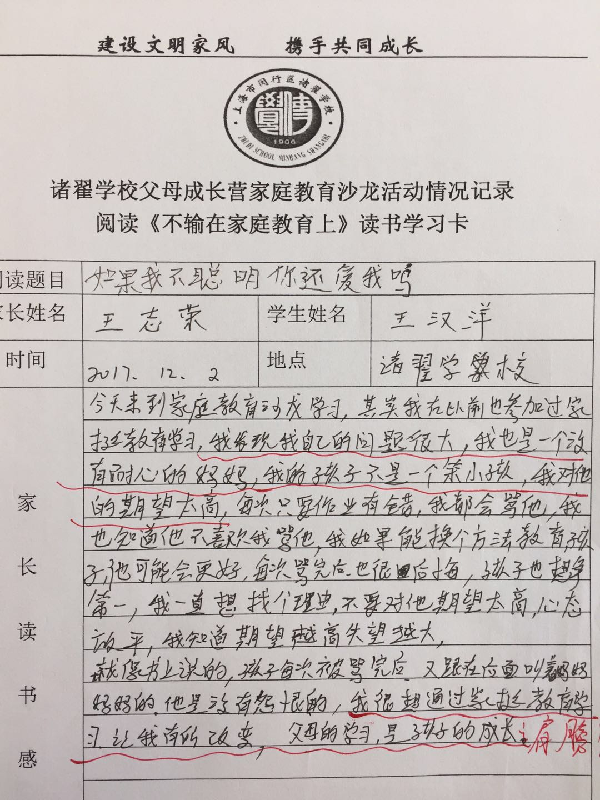 建设文明家风 携手共同成长
上海市闵行区诸翟学校
1906
ZHUDI SCHOOL MINHANG SHANGHAI
诸翟学校父母成长营家庭教育沙龙活动情况记录
阅读《不输在家庭教育上》读书学习卡
阅读题目 如果我不聪明你还爱我吗
家长姓名 王志荣 学生姓名 王汉洋
时间 2017.12.2 地点 诸翟学校
家长读书感
今天来到家庭教育沙龙学习,其实我在以前也参加过家
庭教育学习,我发现我自己的问题很大,我也是一个没
有耐心的妈妈,我的孩子不是一个笨小孩,我对他
的期望太高,每次只要作业有错,我都会骂他,我
也知道他不喜欢我骂他,我如果能换个方法教育孩
子,他可能会更好,每次骂完后也很后悔,孩子也想争
第一,我一直想找个理由,不要对他期望太高,心态
放平,我知道期望越高失望越大,
就像书上说的,孩子每次被骂完后又跟在后面叫妈妈
好好的他是没有怨恨的,我很想通过家庭教育学
习让我有所改变,父母的学习,是孩子的成长